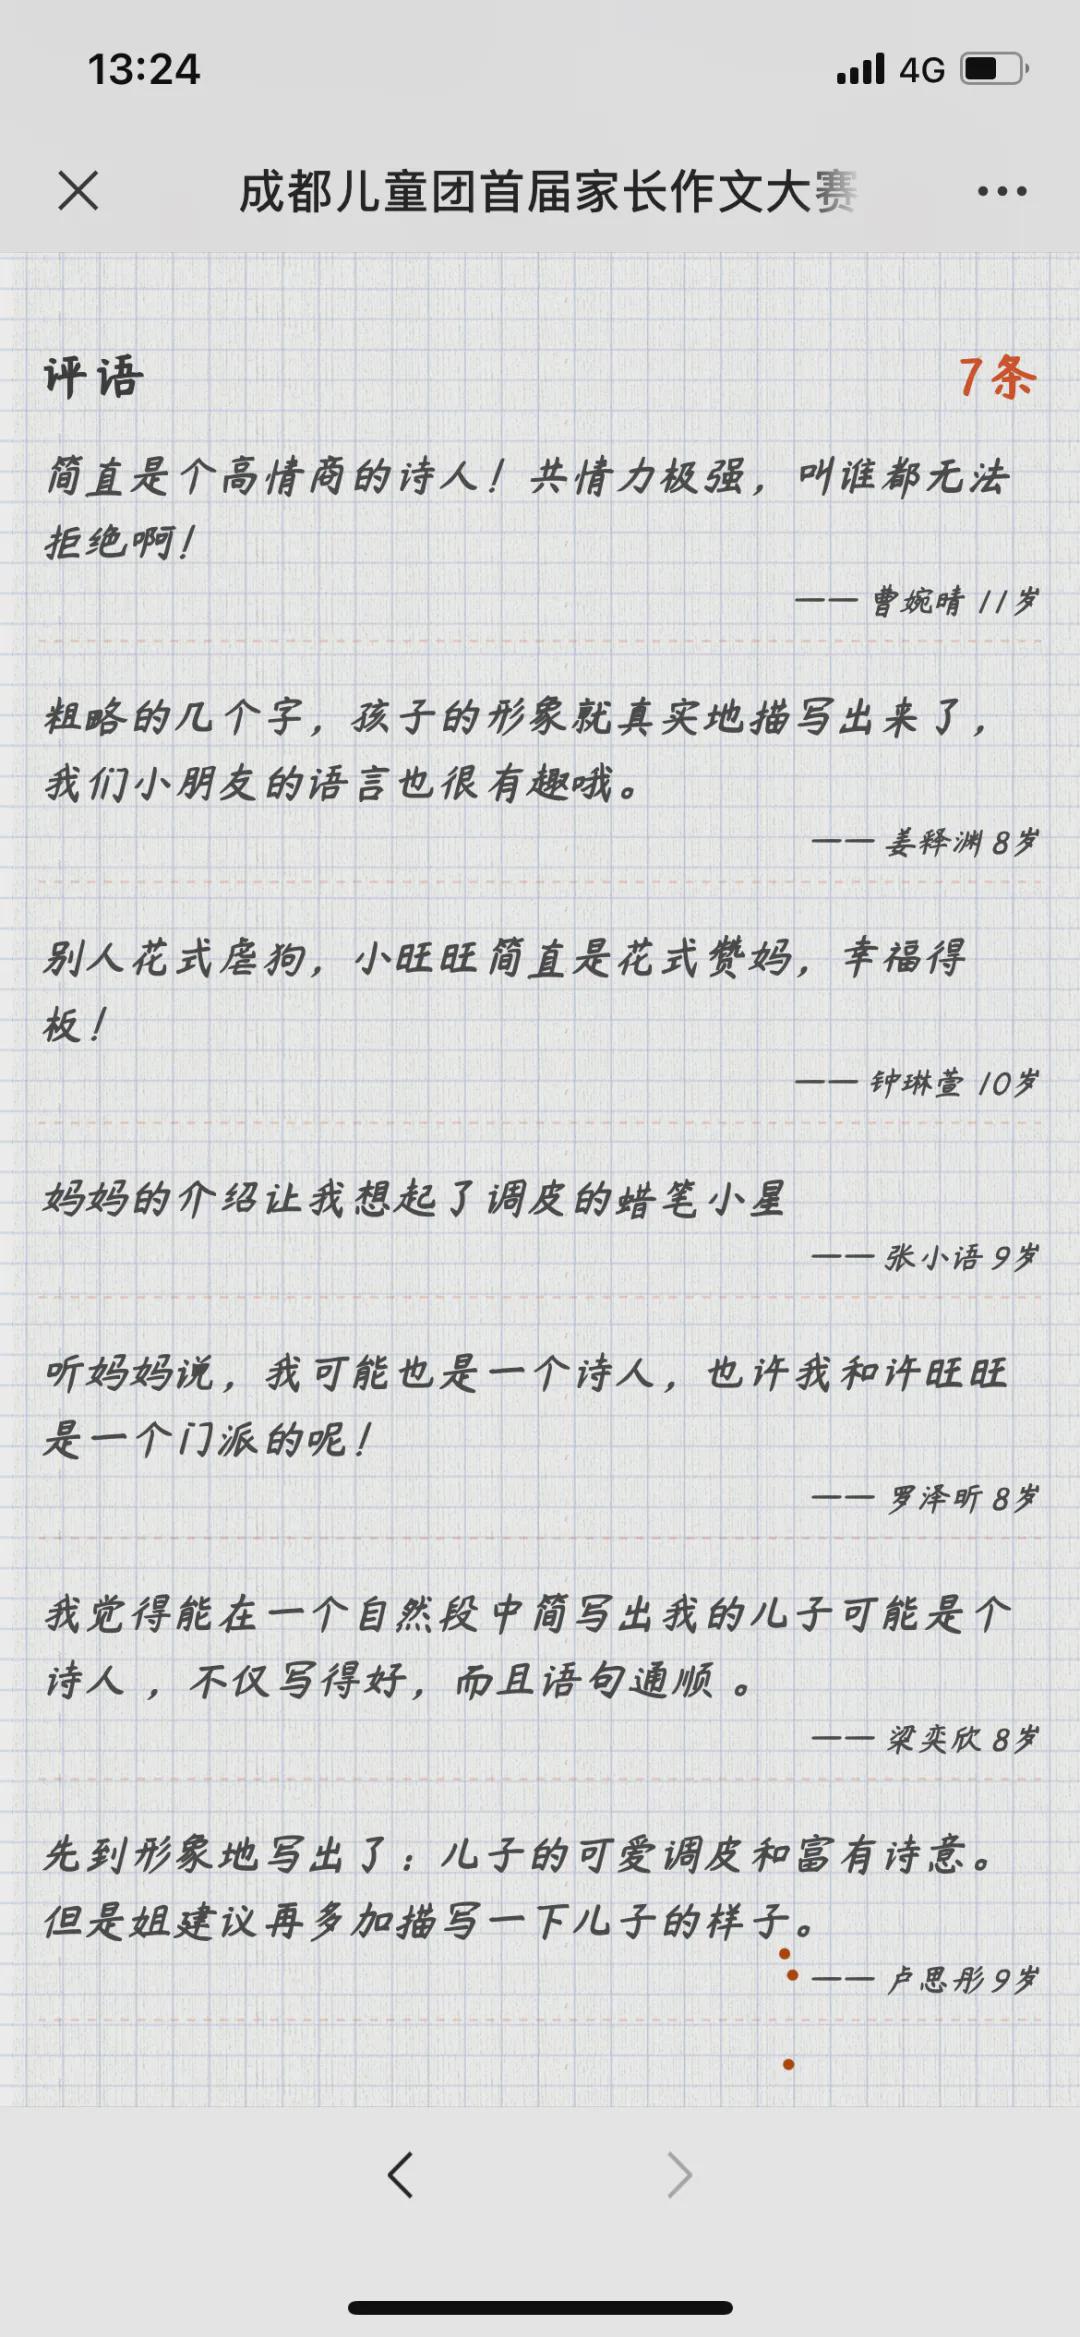 13:24
4G
成都儿童团首届家长作文大赛
评语
7条
简直是个高情商的诗人！共情力极强，叫谁都无法
拒绝啊！
—— 曹婉晴 11岁
粗略的几个字，孩子的形象就真实地描写出来了，
我们小朋友的语言也很有趣哦。
—— 姜释渊 8岁
别人花式虐狗，小旺旺简直是花式赞妈，幸福得
板！
—— 钟琳萱 10岁
妈妈的介绍让我想起了调皮的蜡笔小星
—— 张小语 9岁
听妈妈说，我可能也是一个诗人，也许我和许旺旺
是一个门派的呢！
—— 罗泽昕 8岁
我觉得能在一个自然段中简写出我的儿子可能是个
诗人 ，不仅写得好，而且语句通顺 。
—— 梁奕欣 8岁
先到形象地写出了：儿子的可爱调皮和富有诗意。
但是姐建议再多加描写一下儿子的样子。
—— 卢思彤 9岁